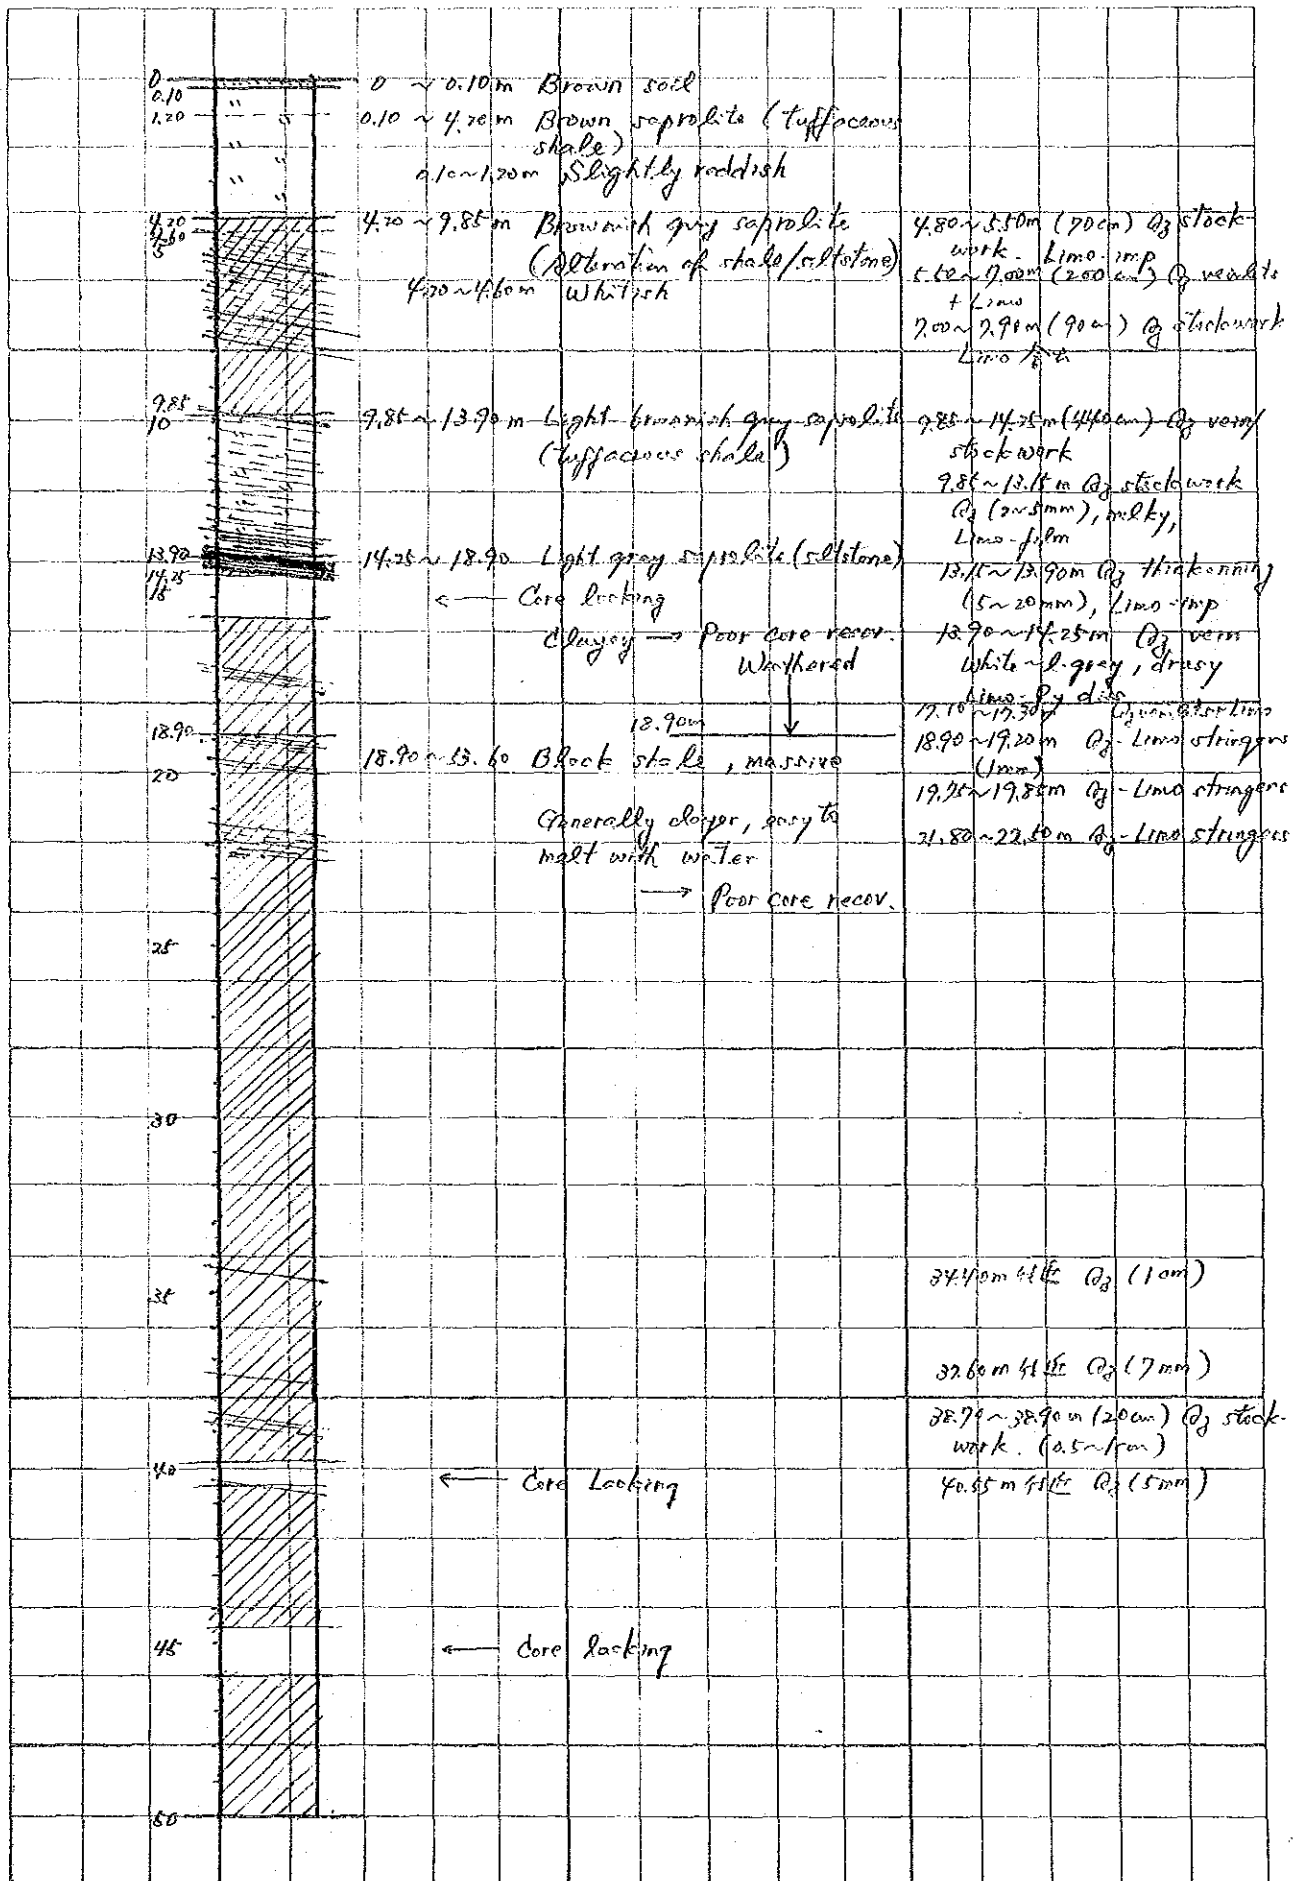 0
0.10
1.20
4.20
4.60
5
9.85
10
13.90
14.25
15
18.90
20
25
30
35
40
45
50
0 ~ 0.10 m Brown soil
0.10 ~ 4.20 m Brown saprolite (tuffaceous
shale)
0.10~1.20m Slightly reddish
4.20 ~ 9.85 m Brownish gray saprolite
(Alteration of shale/siltstone)
4.20~4.60m Whitish
9.85 ~ 13.90 m Light brownish gray saprolite
(tuffaceous shale)
14.25 ~ 18.90 Light gray saprolite (siltstone)
← Core lacking
Clayey → Poor core recov.
Weathered
18.90m
18.90 ~ 53.60 Black shale, massive
Generally clayey, easy to
melt with water
→ Poor core recov.
← Core Lacking
← Core lacking
4.80~5.50m (70cm) Qz stock-
work. Limo-imp
(200 cm) Qz veinlets
+ Limo
7.00~7.90m (90cm) Qz stockwork
Limo
9.85~14.25m (440cm) Qz vein/
stockwork
9.85~13.15 m Qz stockwork
Qz (2~5mm), milky,
Limo-film
13.15~13.90m Qz thickenning
(5~20mm), Limo-imp
13.90~14.25m Qz vein
White~l.gray, drusy
Limo-Py dis
17.10~17.30m
18.90~19.20m Qz-Limo stringers
(1mm)
19.75~19.85m Qz-Limo stringers
21.80~22.50m Qz-Limo stringers
34.40m 付近 Qz (1cm)
37.60m 付近 Qz (7mm)
38.70~38.90m (20cm) Qz stock-
work. (0.5~1cm)
40.55m 付近 Qz (5mm)